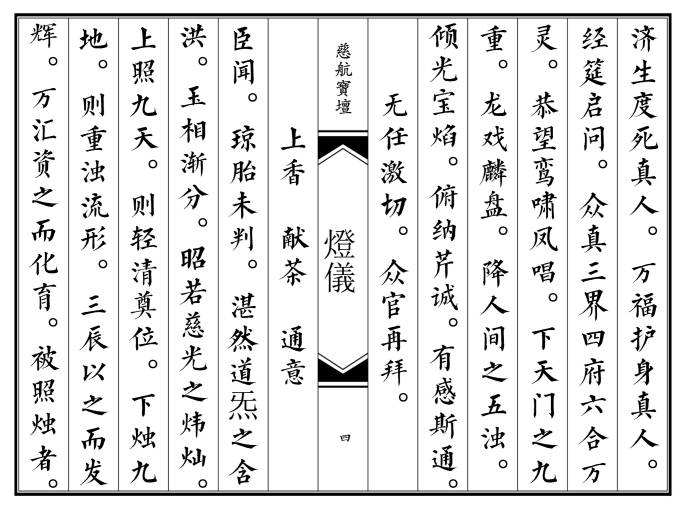 济生度死真人。万福护身真人。
经筵启问。众真三界四府六合万
灵。恭望鸾啸凤唱。下天门之九
重。龙戏麟盘。降人间之五浊。
倾光宝焰。俯纳芹诚。有感斯通。
无任激切。众官再拜。
慈航寶壇
燈儀
四
上香 献茶 通意
臣闻。琼胎未判。湛然道炁之含
洪。玉相渐分。昭若慈光之炜灿。
上照九天。则轻清奠位。下烛九
地。则重浊流形。三辰以之而发
辉。万汇资之而化育。被照烛者。